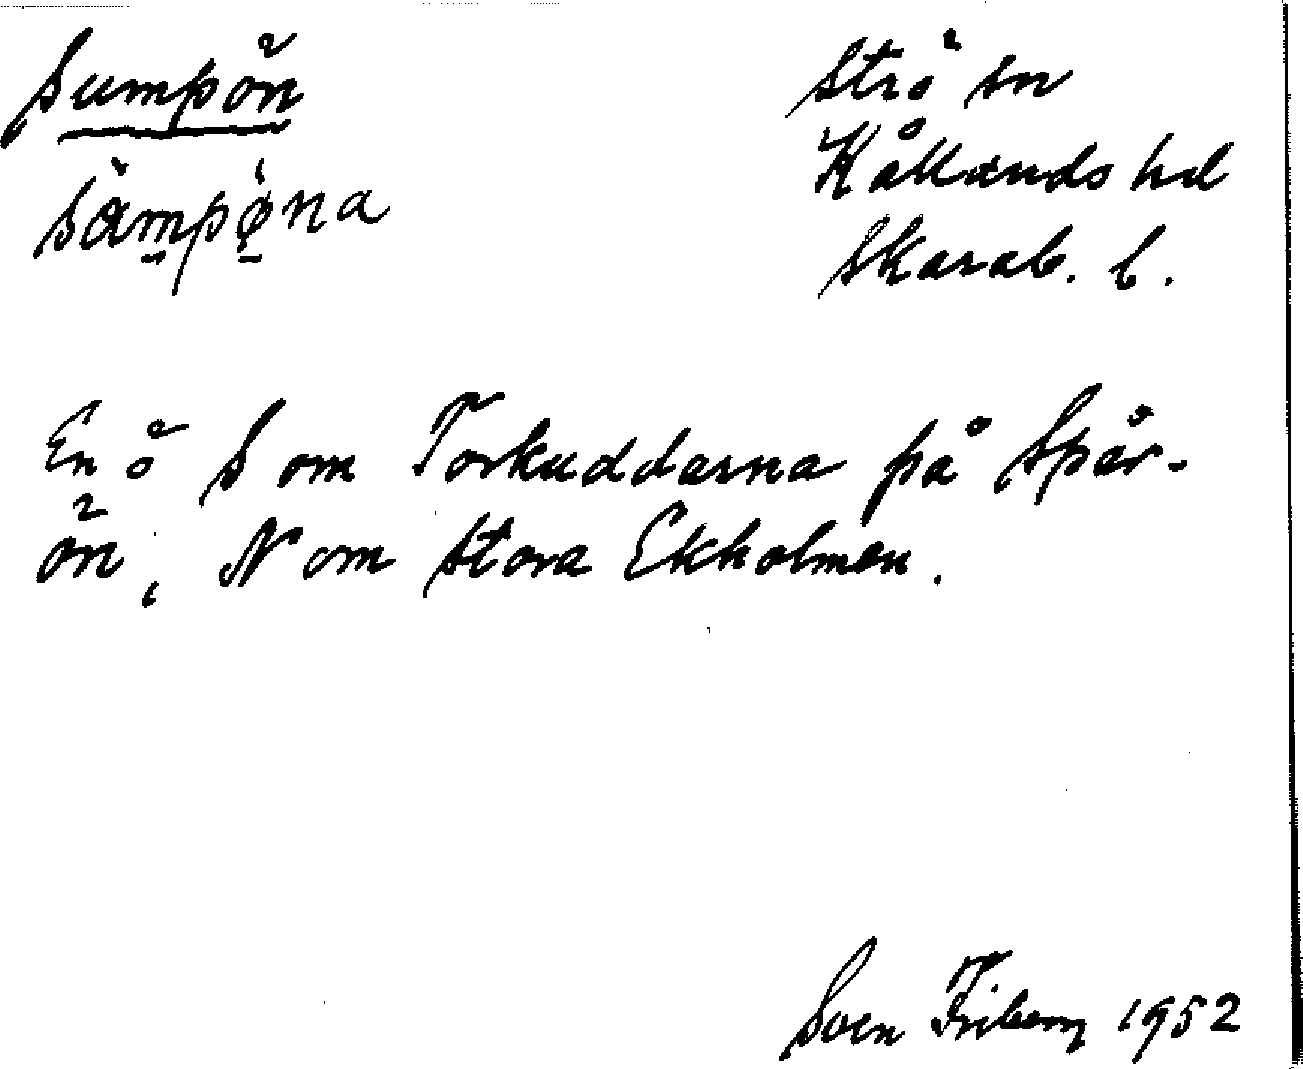 Sumpön
Strö sn
sàmpǿna
Kållands hd
Skarab. l.
En ö S om Torkuddarna på Spår-
ön, N om Stora Ekholmen.
Sven Friberg 1952